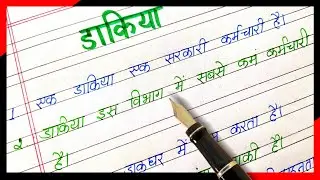 डाकिया
1 एक डाकिया एक सरकारी कर्मचारी है।
२ डाकिया इस विभाग में सबसे कमं कर्मचारी
है।
डाकघर में करता है।